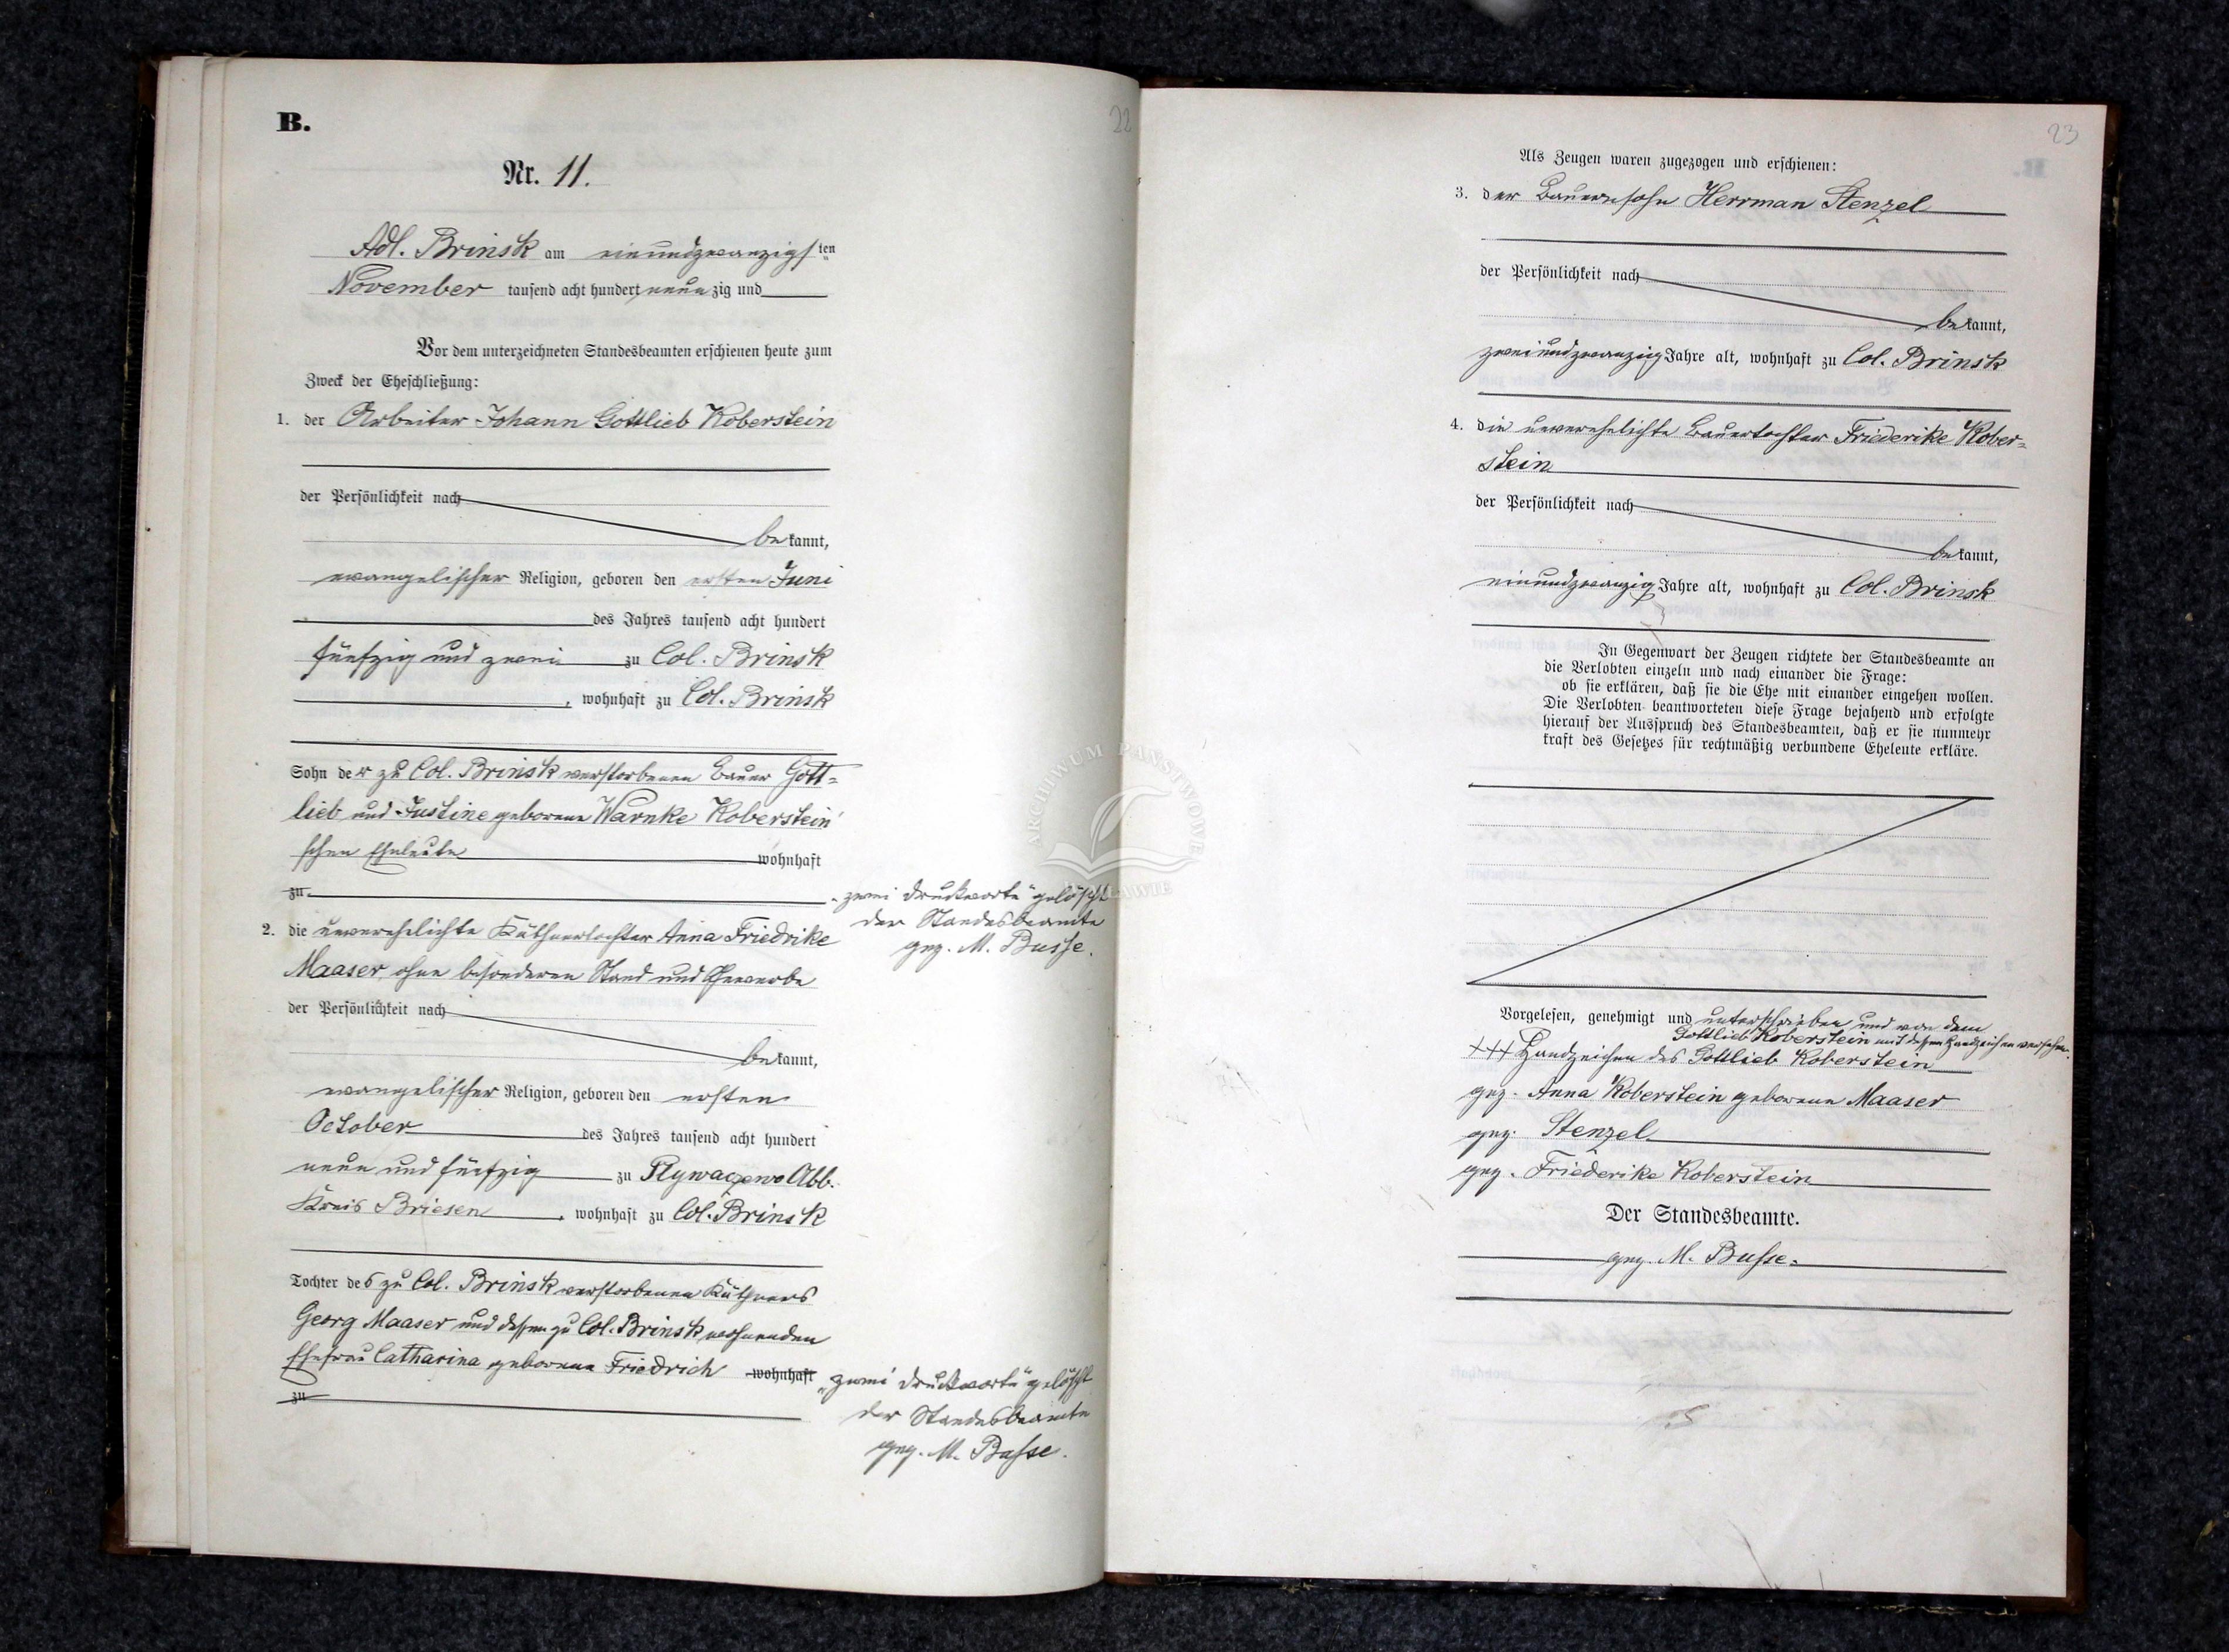 B.
22
Nr. 11.
Adl. Brinsk am einundzwanzigsten
November tausend acht hundert neunzig und
Vor dem unterzeichneten Standesbeamten erschienen heute zum
Zweck der Eheschließung:
1. der Arbeiter Johann Gottlieb Koberstein
der Persönlichkeit nach
bekannt,
evangelischer Religion, geboren den ersten Juni
des Jahres tausend acht hundert
fünfzig und zwei zu Col. Brinsk
, wohnhaft zu Col. Brinsk
Sohn der zu Col. Brinsk verstorbenen Bauer Gott=
lieb und Justine geborene Warnke Koberstein'
schen Eheleute wohnhaft
zu
„zwei Druckworte" gelöscht
der Standesbeamte
gez. M. Busse.
2. die unverehelichte Käthnertochter Anna Friedrike
Maaser, ohne besonderen Stand und Gewerbe
der Persönlichkeit nach
bekannt,
evangelischer Religion, geboren den ersten
October des Jahres tausend acht hundert
neun und fünfzig zu Plywaczewo Abb.
Kreis Briesen, wohnhaft zu Col. Brinsk
Tochter des zu Col. Brinsk verstorbenen Käthners
Georg Maaser und dessen zu Col. Brinsk wohnenden
Ehefrau Catharina geborene Friedrich wohnhaft
zu
„zwei Druckworte" gelöscht
der Standesbeamte
gez. M. Busse.
23
Als Zeugen waren zugezogen und erschienen:
3. der Bauernsohn Herrman Stenzel
der Persönlichkeit nach
bekannt,
zweiundzwanzig Jahre alt, wohnhaft zu Col. Brinsk
4. die unverehelichte Bauertochter Friederike Kober=
stein
der Persönlichkeit nach
bekannt,
einundzwanzig Jahre alt, wohnhaft zu Col. Brinsk
In Gegenwart der Zeugen richtete der Standesbeamte an
die Verlobten einzeln und nach einander die Frage:
ob sie erklären, daß sie die Ehe mit einander eingehen wollen.
Die Verlobten beantworteten diese Frage bejahend und erfolgte
hierauf der Ausspruch des Standesbeamten, daß er sie nunmehr
kraft des Gesetzes für rechtmäßig verbundene Eheleute erkläre.
Vorgelesen, genehmigt und unterschrieben und von dem
Gottlieb Koberstein mit dessen Handzeichen versehen.
+++ Handzeichen des Gottlieb Koberstein
gez. Anna Koberstein geborene Maaser
gez. Stenzel
gez. Friederike Koberstein
Der Standesbeamte.
gez. M. Busse.
ARCHIWUM PAŃSTWOWE